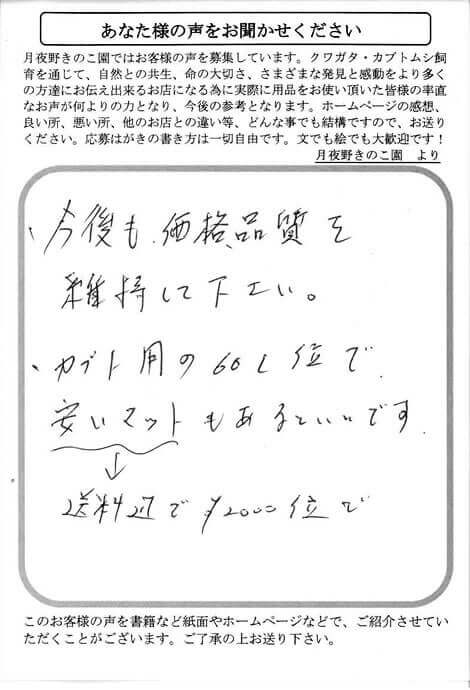 あなた様の声をお聞かせください
月夜野きのこ園ではお客様の声を募集しています。クワガタ・カブトムシ飼
育を通じて、自然との共生、命の大切さ、さまざまな発見と感動をより多く
の方達にお伝え出来るお店になる為に実際に用品をお使い頂いた皆様の率直
なお声が何よりの力となり、今後の参考となります。ホームページの感想、
良い所、悪い所、他のお店との違い等、どんな事でも結構ですので、お送り
ください。応募はがきの書き方は一切自由です。文でも絵でも大歓迎です！
月夜野きのこ園　より
、今後も、価格、品質を
維持して下さい。
、カブト用の60L位で
安いマットもあるといいです。
↓
送料込で¥2000位で
このお客様の声を書籍など紙面やホームページなどで、ご紹介させていた
だくことがございます。ご了承の上お送り下さい。